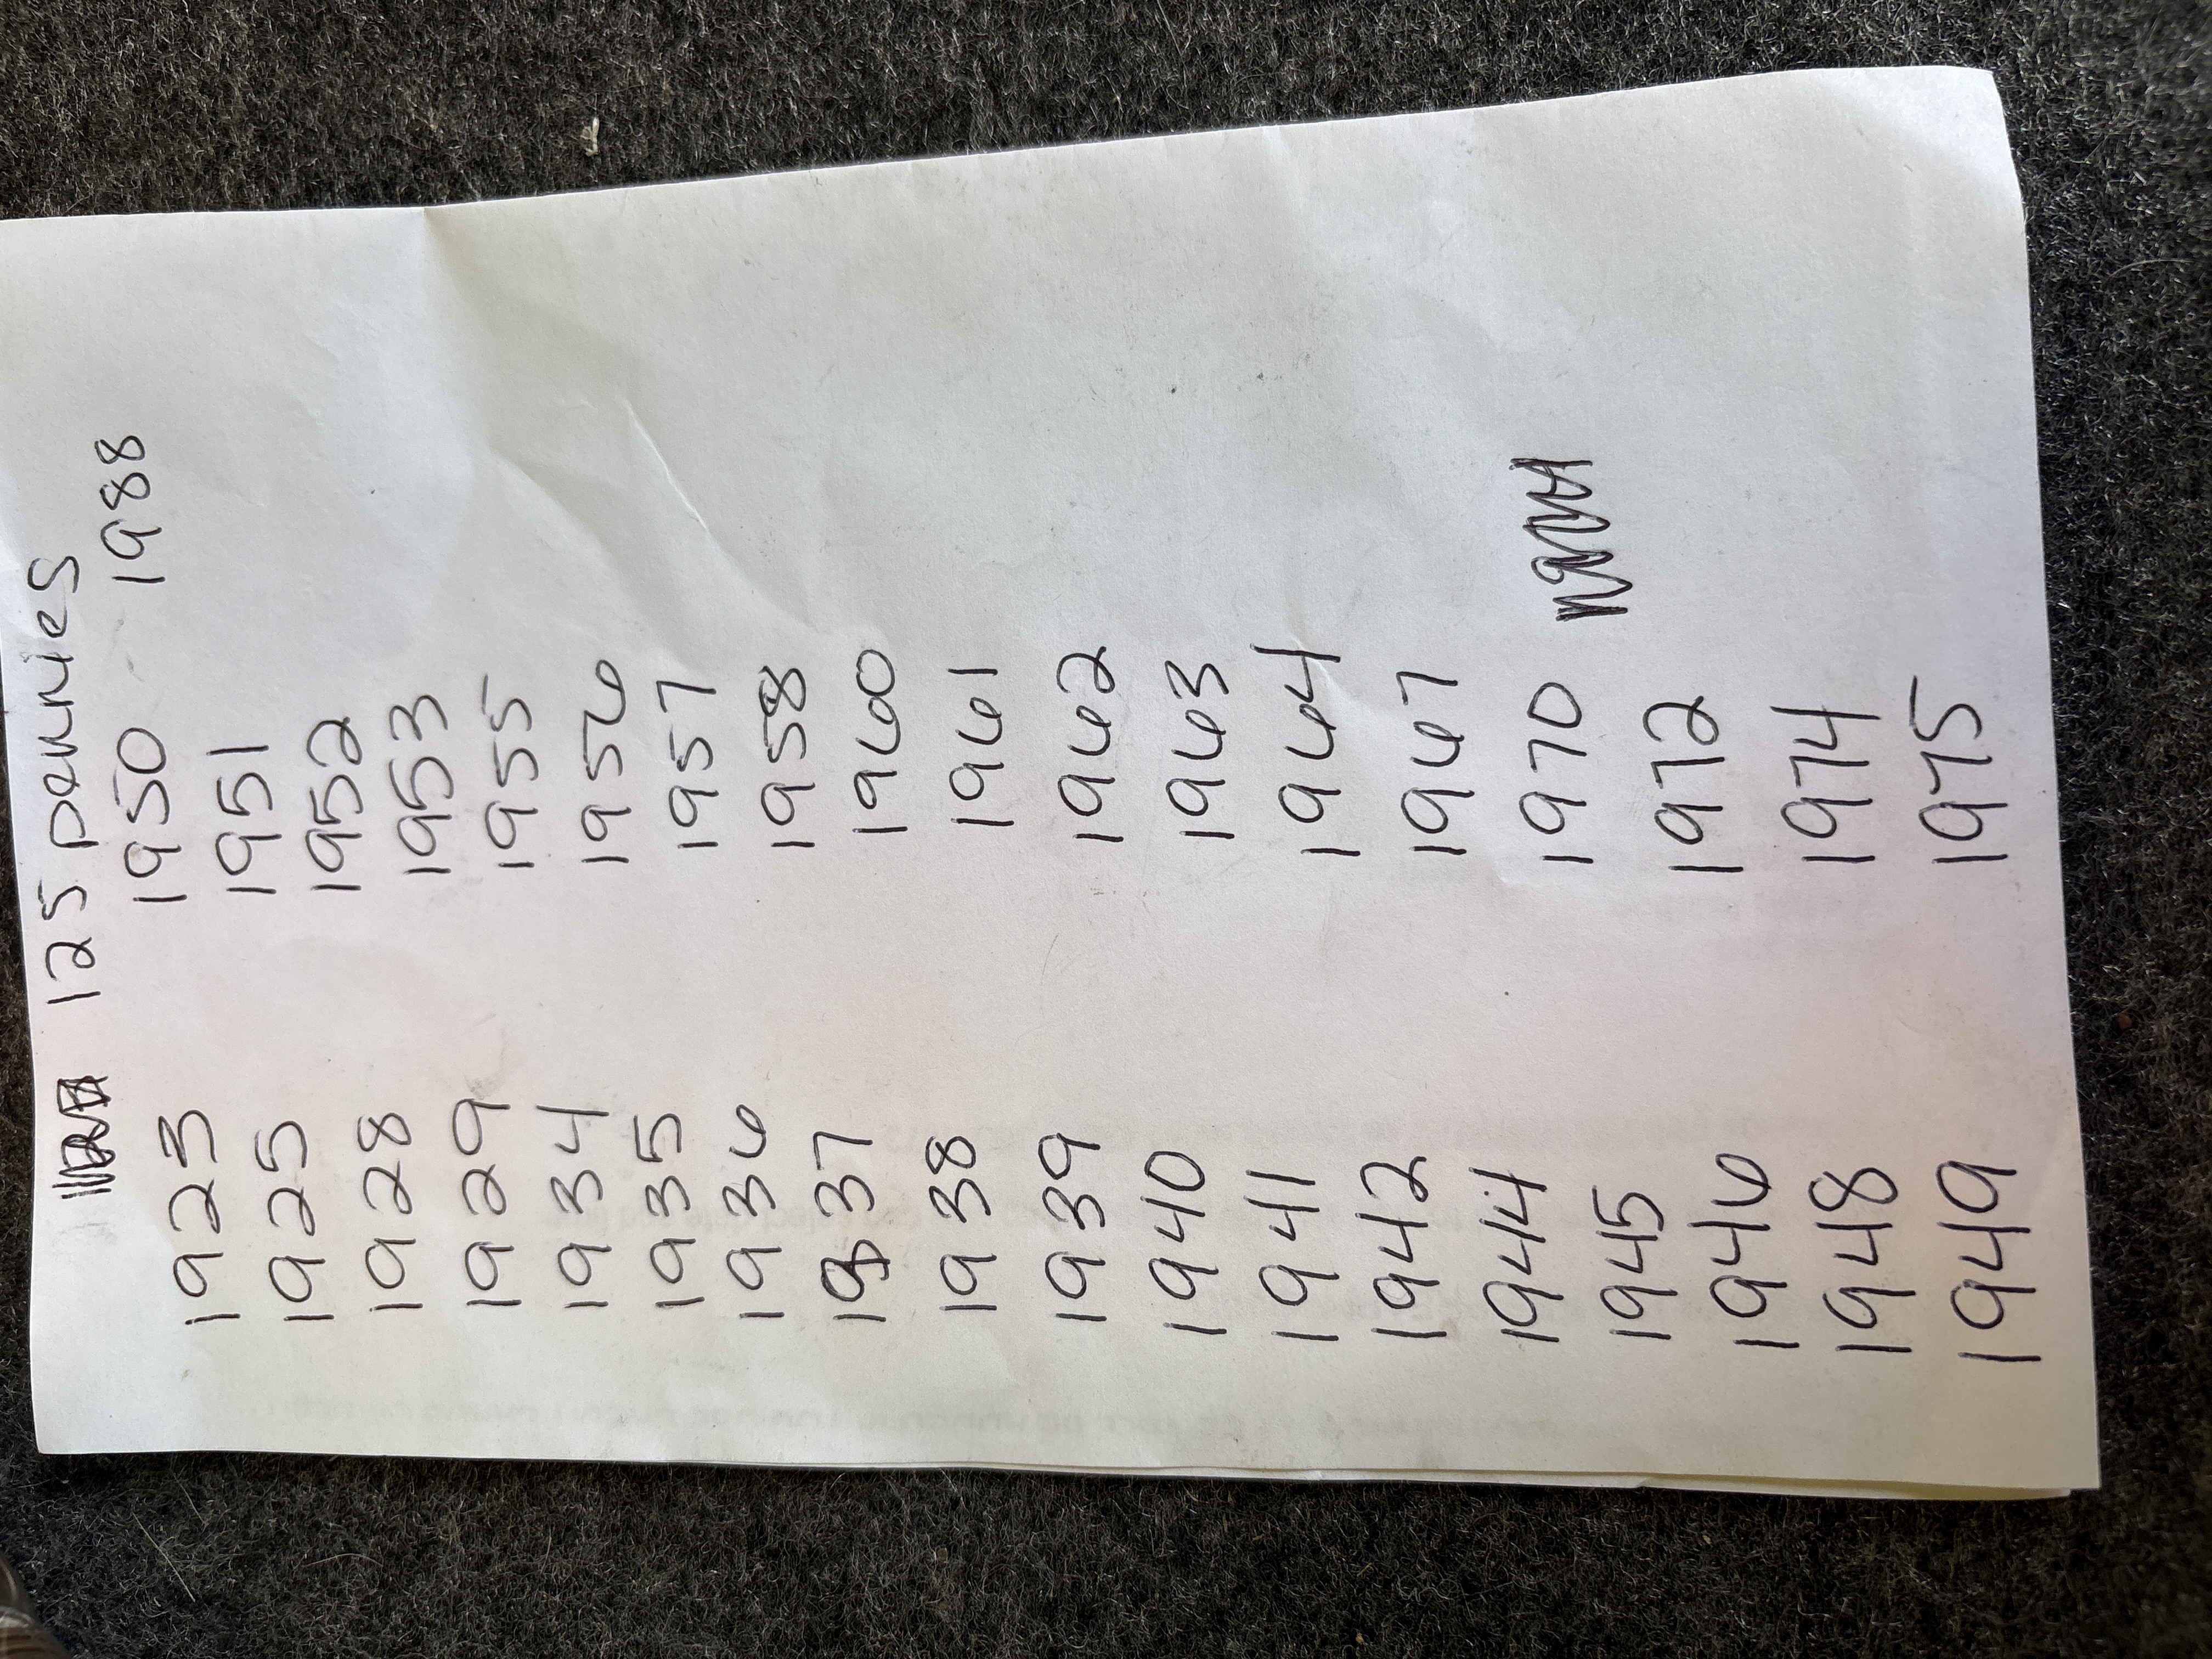 125 pennies
1923 1950 1988
1925 1951
1928 1952
1929 1953
1934 1955
1935 1956
1936 1957
1937 1958
1938 1960
1939 1961
1940 1962
1941 1963
1942 1964
1944 1967
1945 1970
1946 1972
1948 1974
1949 1975